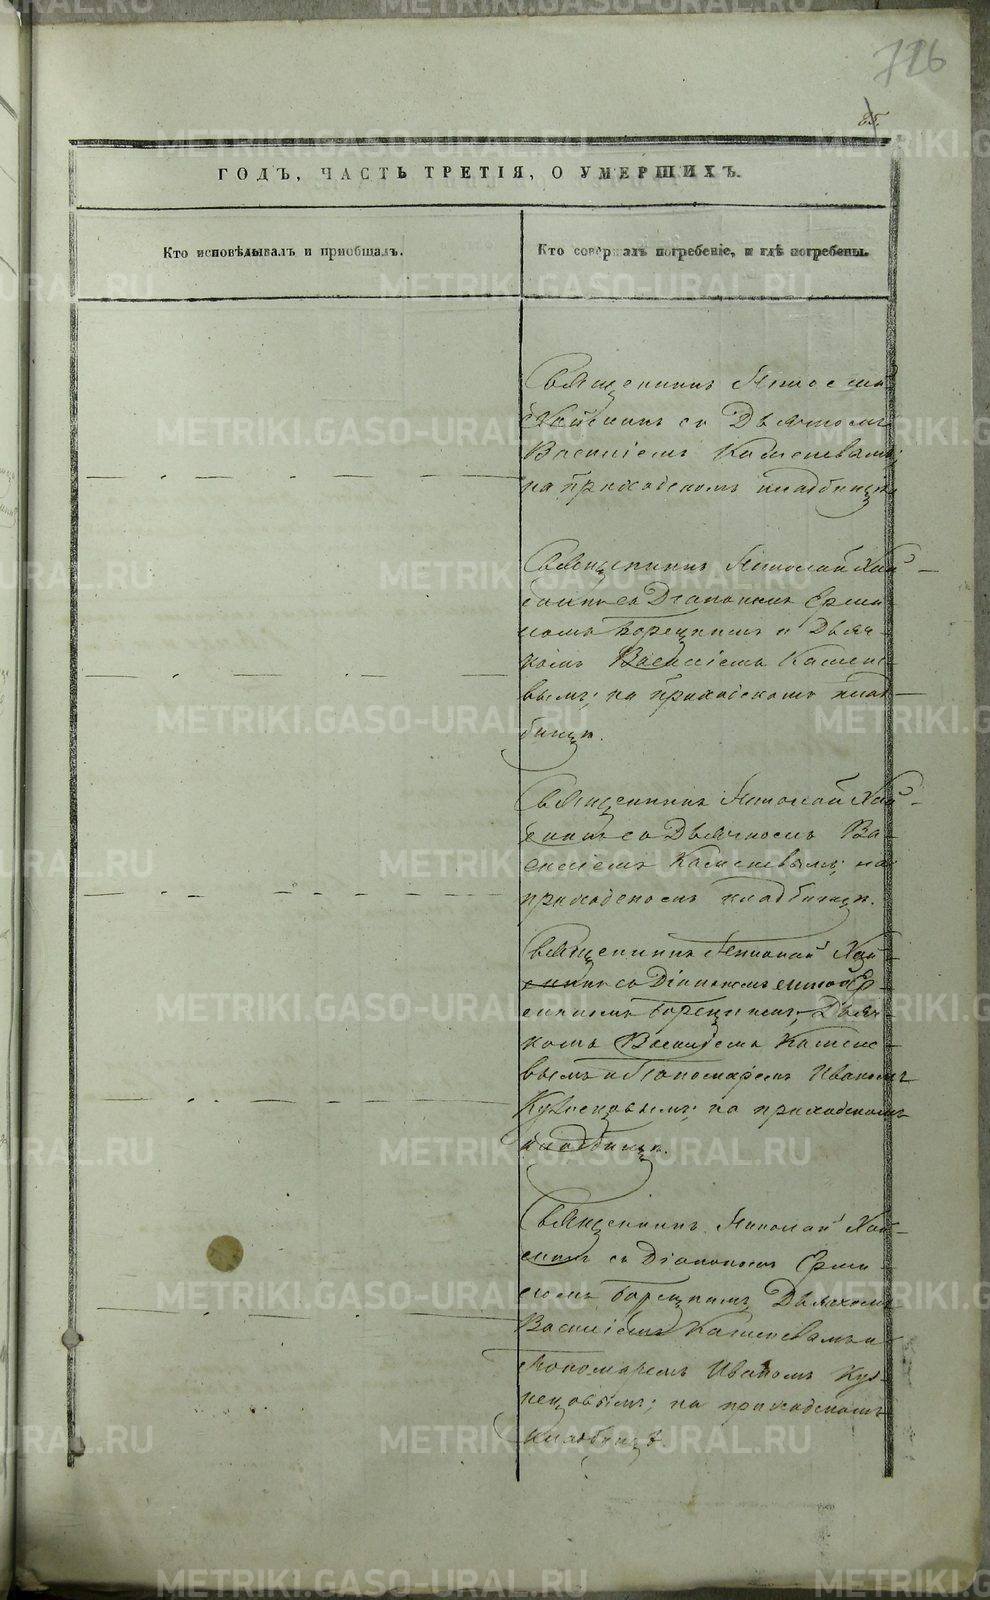 726
85.
ГОДЪ, ЧАСТЬ ТРЕТІЯ, О УМЕРШИХЪ.
Кто исповѣдывалъ и пріобщалъ.
Кто совершалъ погребеніе, и гдѣ погребены.
Священникъ Николай
съ Дьячкомъ
Василіемъ Каменевымъ;
на приходскомъ кладбищѣ
Священникъ Николай Хай-
съ Діакономъ
Борецкимъ и Дьяч-
комъ Василіемъ Камене-
вымъ; на приходскомъ клад-
бищѣ.
Священникъ Николай Хай-
съ Дьячкомъ Ва-
силіемъ Каменевымъ; на
приходскомъ кладбищѣ.
Священникъ Николай Хай-
съ Діакономъ
Борецкимъ, Дьяч-
комъ Василіемъ Камене-
вымъ и Пономаремъ Иваномъ
Кузнецовымъ; на приходскомъ
кладбищѣ.
Священникъ Николай Хай-
съ Діакономъ
Борецкимъ, Дьячкомъ
Василіемъ Каменевымъ и
Пономаремъ Иваномъ Куз-
нецовымъ; на приходскомъ
кладбищѣ.
METRIKI.GASO-URAL.RU